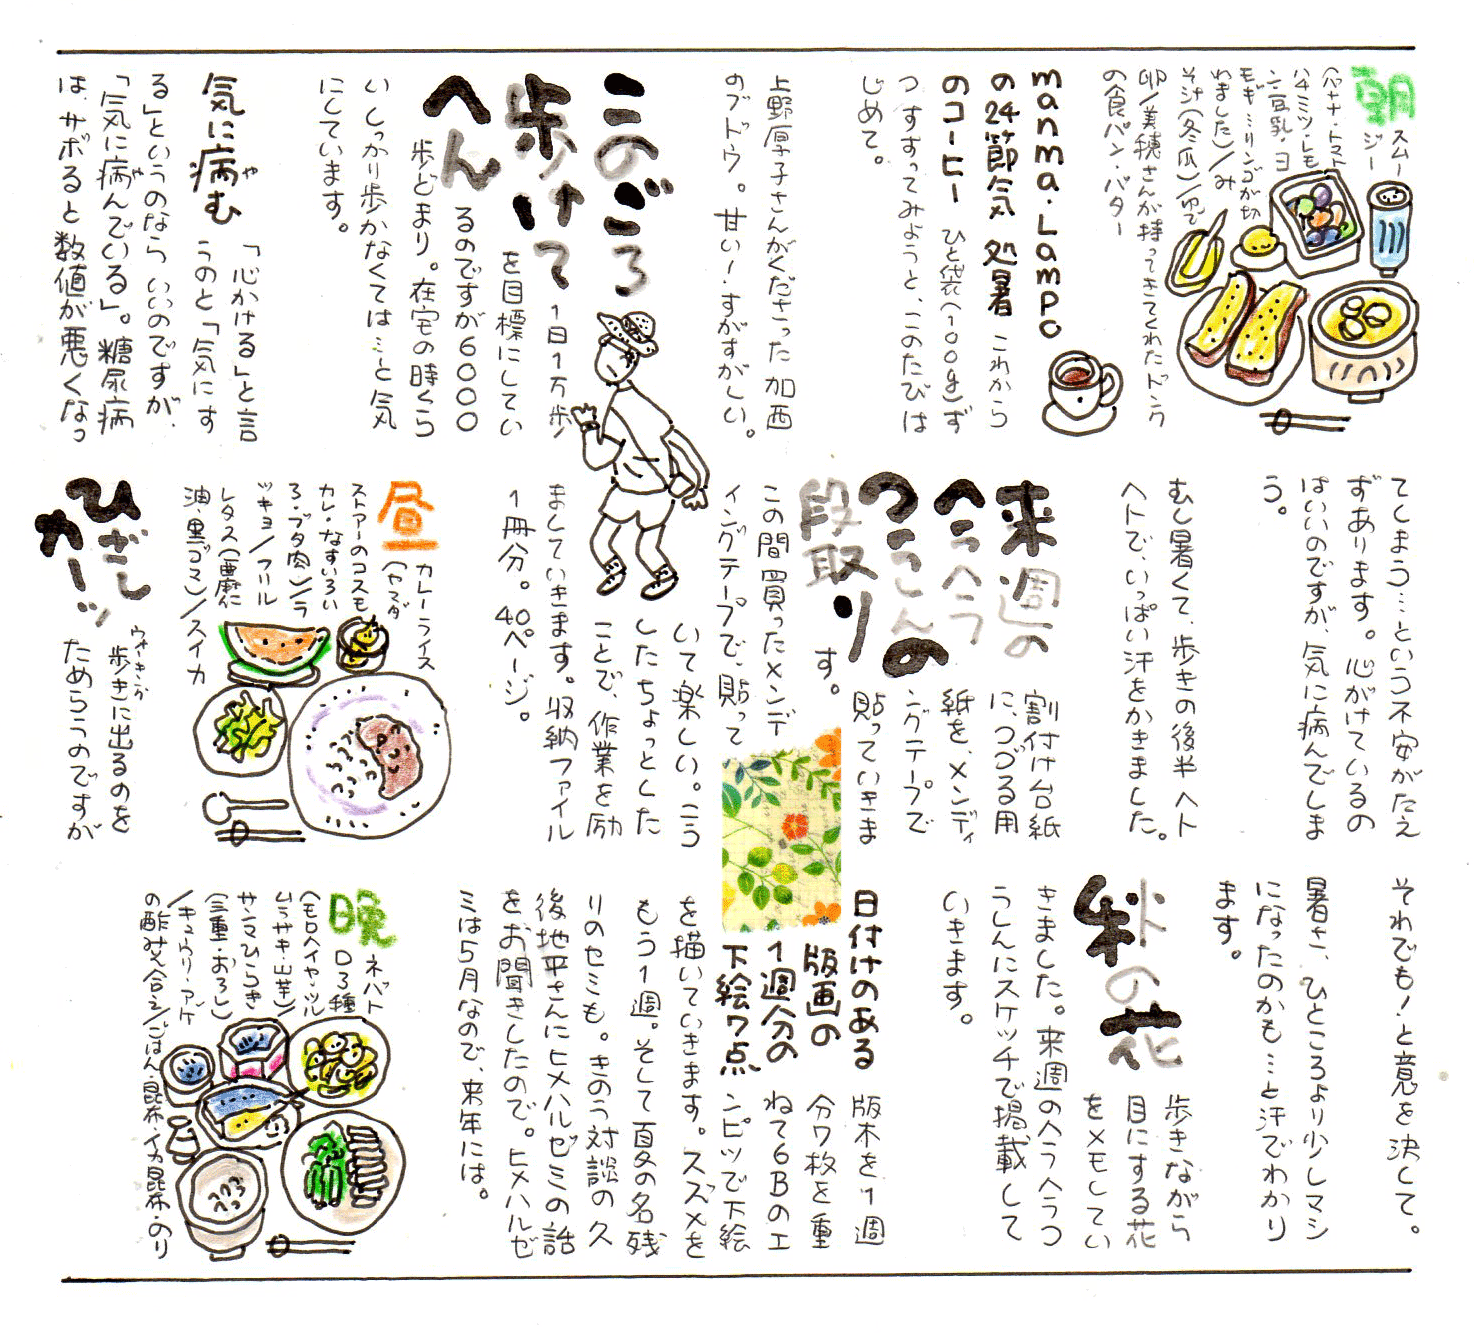 朝
スムー
ジー
(バナナ・トマト・
ハチミツ・レモ
ン・豆乳・ヨ
モギ…リンゴが切
れました)/み
そ汁(冬瓜)/ゆで
卵/美穂さんが持ってきてくれたドンク
の食パン・バター
manma・Lampo
の24節気 処暑
のコーヒー
これから
ひと袋(100g)ず
つすすってみようと、このたびは
じめて。
上野厚子さんがくださった加西
のブドウ。甘い!すがすがしい。
このごろ
歩けて
へん
1日1万歩
を目標にしてい
るのですが6000
歩どまり。在宅の時くら
いしっかり歩かなくては…と気
にしています。
気に病む
や
「心かける」と言
うのと「気にす
る」というのなら いいのですが、
「気に病んでいる」。糖尿病
や
は、サボると数値が悪くなっ
てしまう…という不安がたえ
ずあります。心がけているの
はいいのですが、気に病んでしま
う。
むし暑くて、歩きの後半 ヘト
ヘトで、いっぱい汗をかきました。
来週の
へうへう
つうしんの
段取り
割付け台紙
に、つづる用
紙を、メンディ
ングテープで
貼っていきま
す。
この間買ったメンデ
ィングテープで、貼って
いて楽しい。こう
したちょっとした
ことで、作業を励
ましていきます。収納ファイル
1冊分。40ページ。
昼
カレーライス
(ヤマダ
ストアーのコスモ
カレ・なすいろい
ろ・ブタ肉)/ラ
ッキョ/フリル
レタス(亜麻仁
油・黒ゴマ)/スイカ
ひざし
カーッ
ウォーキング
歩きに出るのを
ためらうのですが
それでも!と意を決して。
暑さ、ひところより少しマシ
になったのかも…と汗でわかり
ます。
秋の花
歩きながら
目にする花
をメモしてい
きました。来週のヘうへうつ
うしんにスケッチで掲載して
いきます。
日付けのある
版画の
1週分の
下絵7点
版木を1週
分7枚を重
ねて6Bのエ
ンピツで下絵
を描いていきます。スズメを
もう1週。そして夏の名残
りのセミも。きのう対談の久
後地平さんにヒメハルゼミの話
をお聞きしたので。ヒメハルゼ
ミは5月なので、来年には。
晩
ネバト
ロ3種
(モロヘイヤ・ツル
ムラサキ・山芋)/
サンマひらき
(三重・おろし)
/キュウリ・アゲ
の酢みそ合え/ごはん・昆布・イカ昆布・のり